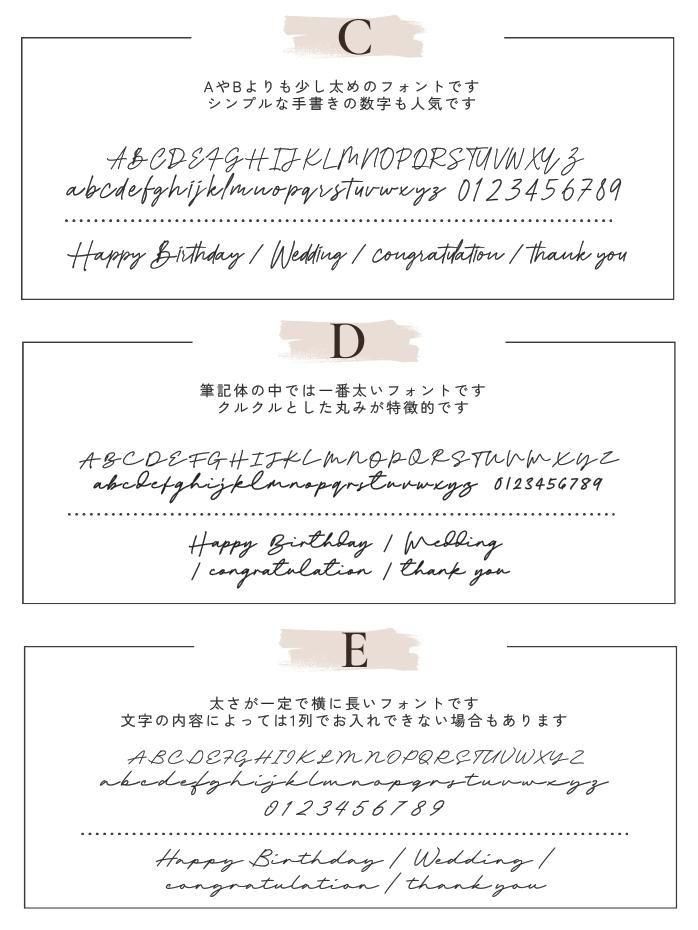 C
AやBよりも少し太めのフォントです
シンプルな手書きの数字も人気です
ABCDEFGHIJKLMNOPQRSTUVWXYZ
abcdefghijklmnopqrstuvwxyz 0123456789
Happy Birthday / Wedding / congratulation / thank you
D
筆記体の中では一番太いフォントです
クルクルとした丸みが特徴的です
ABCDEFGHIJKLMNOPQRSTUVWXYZ
abcdefghijklmnopqrstuvwxyz 0123456789
Happy Birthday / Wedding
/ congratulation / thank you
E
太さが一定で横に長いフォントです
文字の内容によっては1列でお入れできない場合もあります
ABCDEFGHIJKLMNOPQRSTUVWXYZ
abcdefghijklmnopqrstuvwxyz
0123456789
Happy Birthday / Wedding /
congratulation / thank you